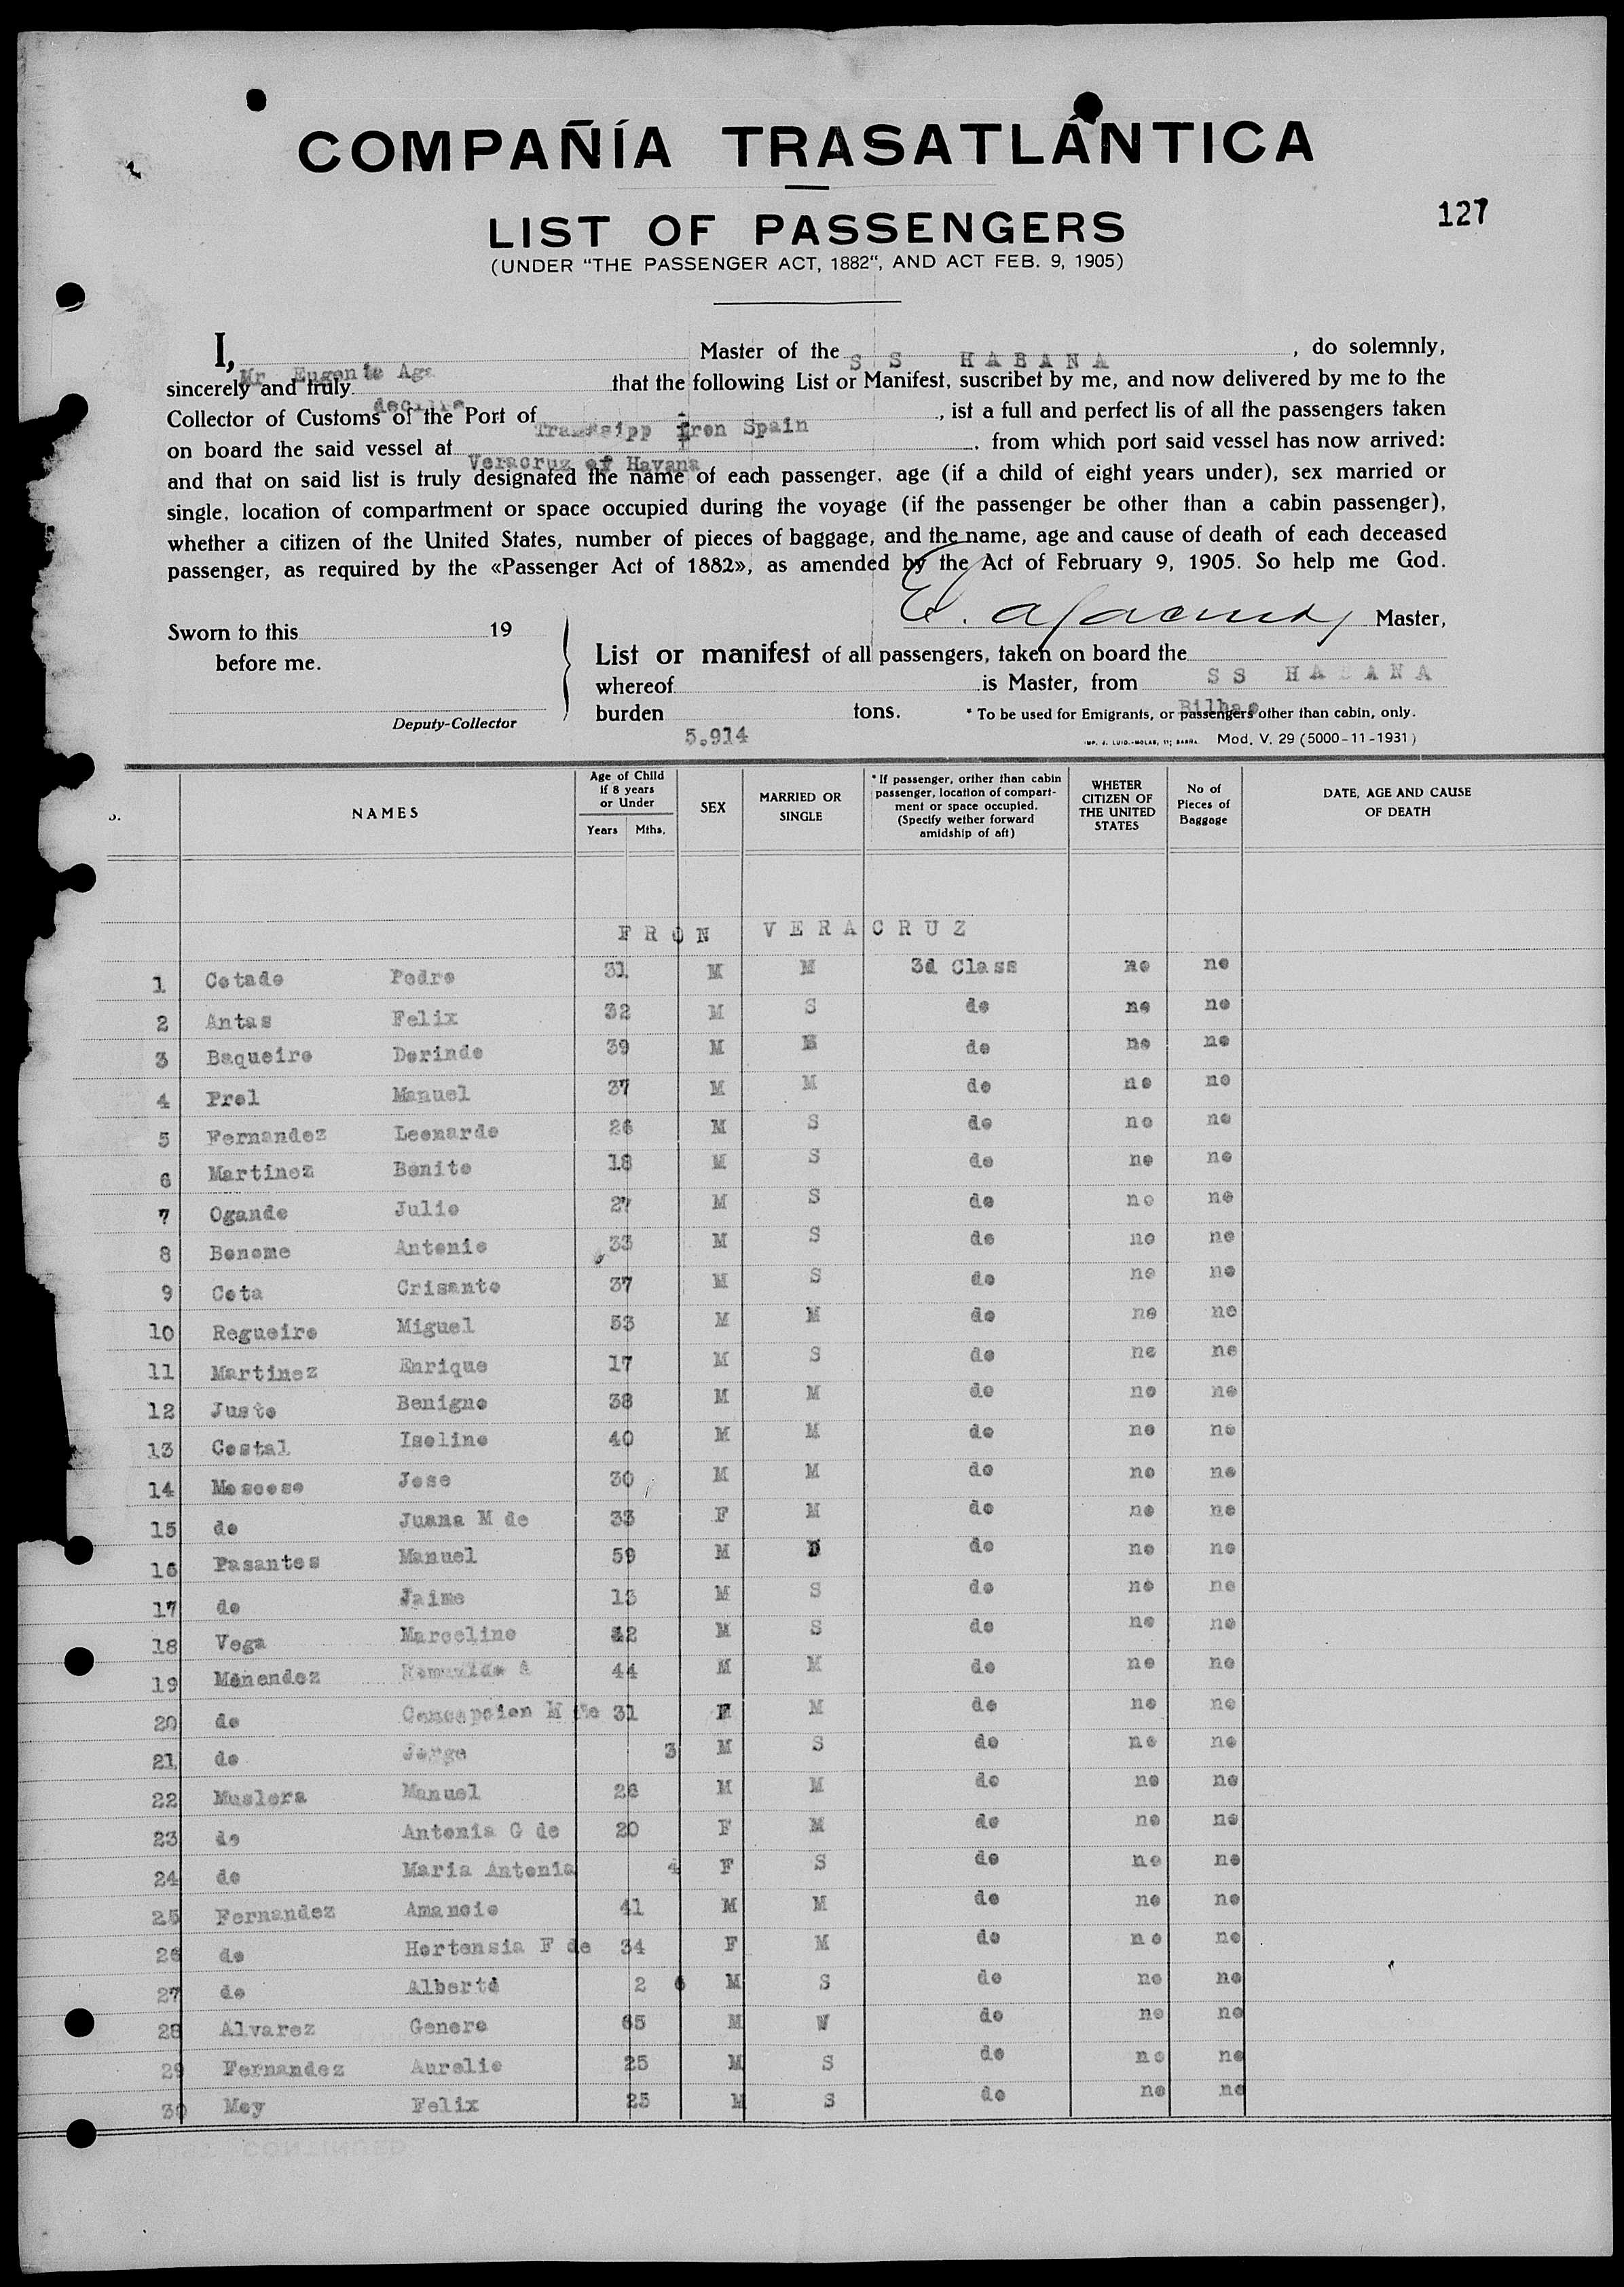 COMPAÑÍA TRASATLÁNTICA
LIST OF PASSENGERS
127
(UNDER "THE PASSENGER ACT, 1882", AND ACT FEB. 9, 1905)
I, Mr Eugenio Aga Master of the S S HABANA, do solemnly,
sincerely and truly that the following List or Manifest, suscribet by me, and now delivered by me to the
Collector of Customs of the Port of, ist a full and perfect lis of all the passengers taken
on board the said vessel at Veracruz of Havana. from which port said vessel has now arrived:
and that on said list is truly designated the name of each passenger, age (if a child of eight years under), sex married or
single, location of compartment or space occupied during the voyage (if the passenger be other than a cabin passenger),
whether a citizen of the United States, number of pieces of baggage, and the name, age and cause of death of each deceased
passenger, as required by the «Passenger Act of 1882», as amended by the Act of February 9, 1905. So help me God.
Master,
Sworn to this 19
before me.
Deputy-Collector
List or manifest of all passengers, taken on board the SS HABANA
whereof is Master, from Bilbao
burden 5.914 tons. * To be used for Emigrants, or passengers other than cabin, only.
Mod. V. 29 (5000-11-1931)
NAMES
Age of Child if 8 years or Under
Years Mths.
SEX
MARRIED OR SINGLE
* If passenger, orther than cabin passenger, location of compartment or space occupied. (Specify wether forward amidship of aft)
WHETER CITIZEN OF THE UNITED STATES
No of Pieces of Baggage
DATE, AGE AND CAUSE OF DEATH
FRON VERACRUZ
1 Cotado Pedro 31 M M 3d Class no no
2 Antas Felix 32 M S do no no
3 Baqueiro Dorindo 39 M M do no no
4 Prol Manuel 37 M M do no no
5 Fernandez Leonardo 26 M S do no no
6 Martinez Benito 18 M S do no no
7 Ogando Julio 27 M S do no no
8 Bonome Antonio 33 M S do no no
9 Cota Crisanto 37 M S do no no
10 Regueiro Miguel 53 M M do no no
11 Martinez Enrique 17 M S do no no
12 Justo Benigno 38 M M do no no
13 Costal Isolino 40 M M do no no
14 Moscoso Jose 30 M M do no no
15 do Juana M de 33 F M do no no
16 Pasantes Manuel 59 M do no no
17 do Jaime 13 M S do no no
18 Vega Marcelino 42 M S do no no
19 Menendez 44 M M do no no
20 do Concepcion M de 31 F M do no no
21 do Jorge 3 M S do no no
22 Muslera Manuel 26 M M do no no
23 do Antonia G de 20 F M do no no
24 do Maria Antonia 4 F S do no no
25 Fernandez Amancio 41 M M do no no
26 do Hortensia F de 34 F M do no no
27 do Alberto 2 6 M S do no no
28 Alvarez Genero 65 M W do no no
29 Fernandez Aurelio 25 M S do no no
30 Moy Felix 25 M S do no no